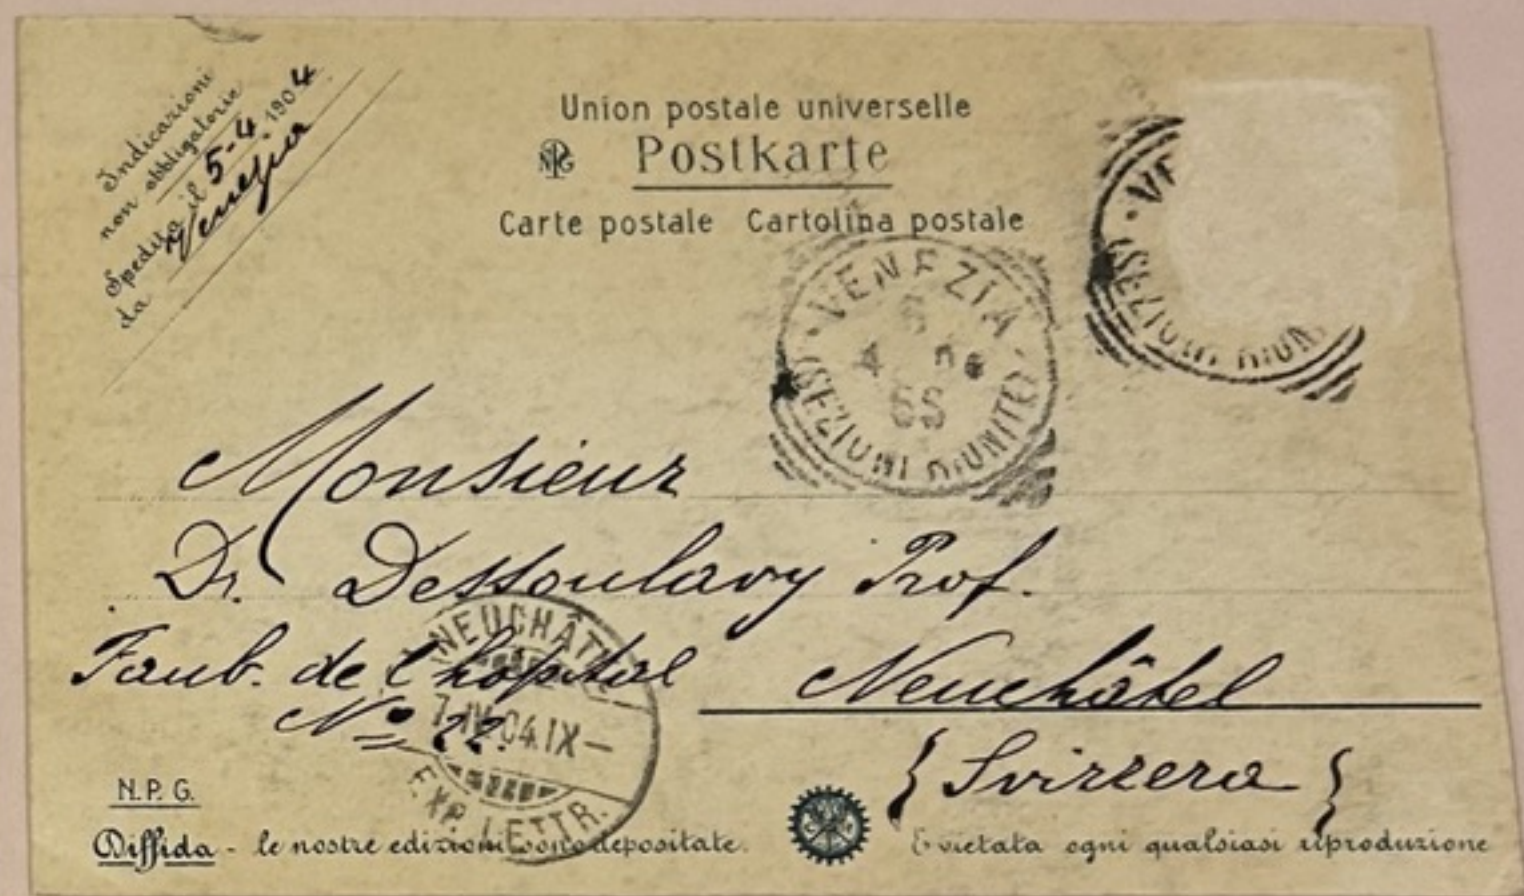 Indicazioni
non obbligatorie
Spedita il 5-4-1904.
da Venezia
Union postale universelle
NPG Postkarte
Carte postale Cartolina postale
VENEZIA
4
6S
(SEZIONI RIUNITE)
VE
(SEZIONI RIUN
Monsieur
Dr. Dessoulavy Prof.
Faub. de l'hôpital
Nº 22.
Neuchâtel
{Svizzera}
NEUCHÂTEL
7.IV.04.IX–
EXP. LETTR.
N. P. G.
Diffida - le nostre edizioni sono depositate.
È vietata ogni qualsiasi riproduzione